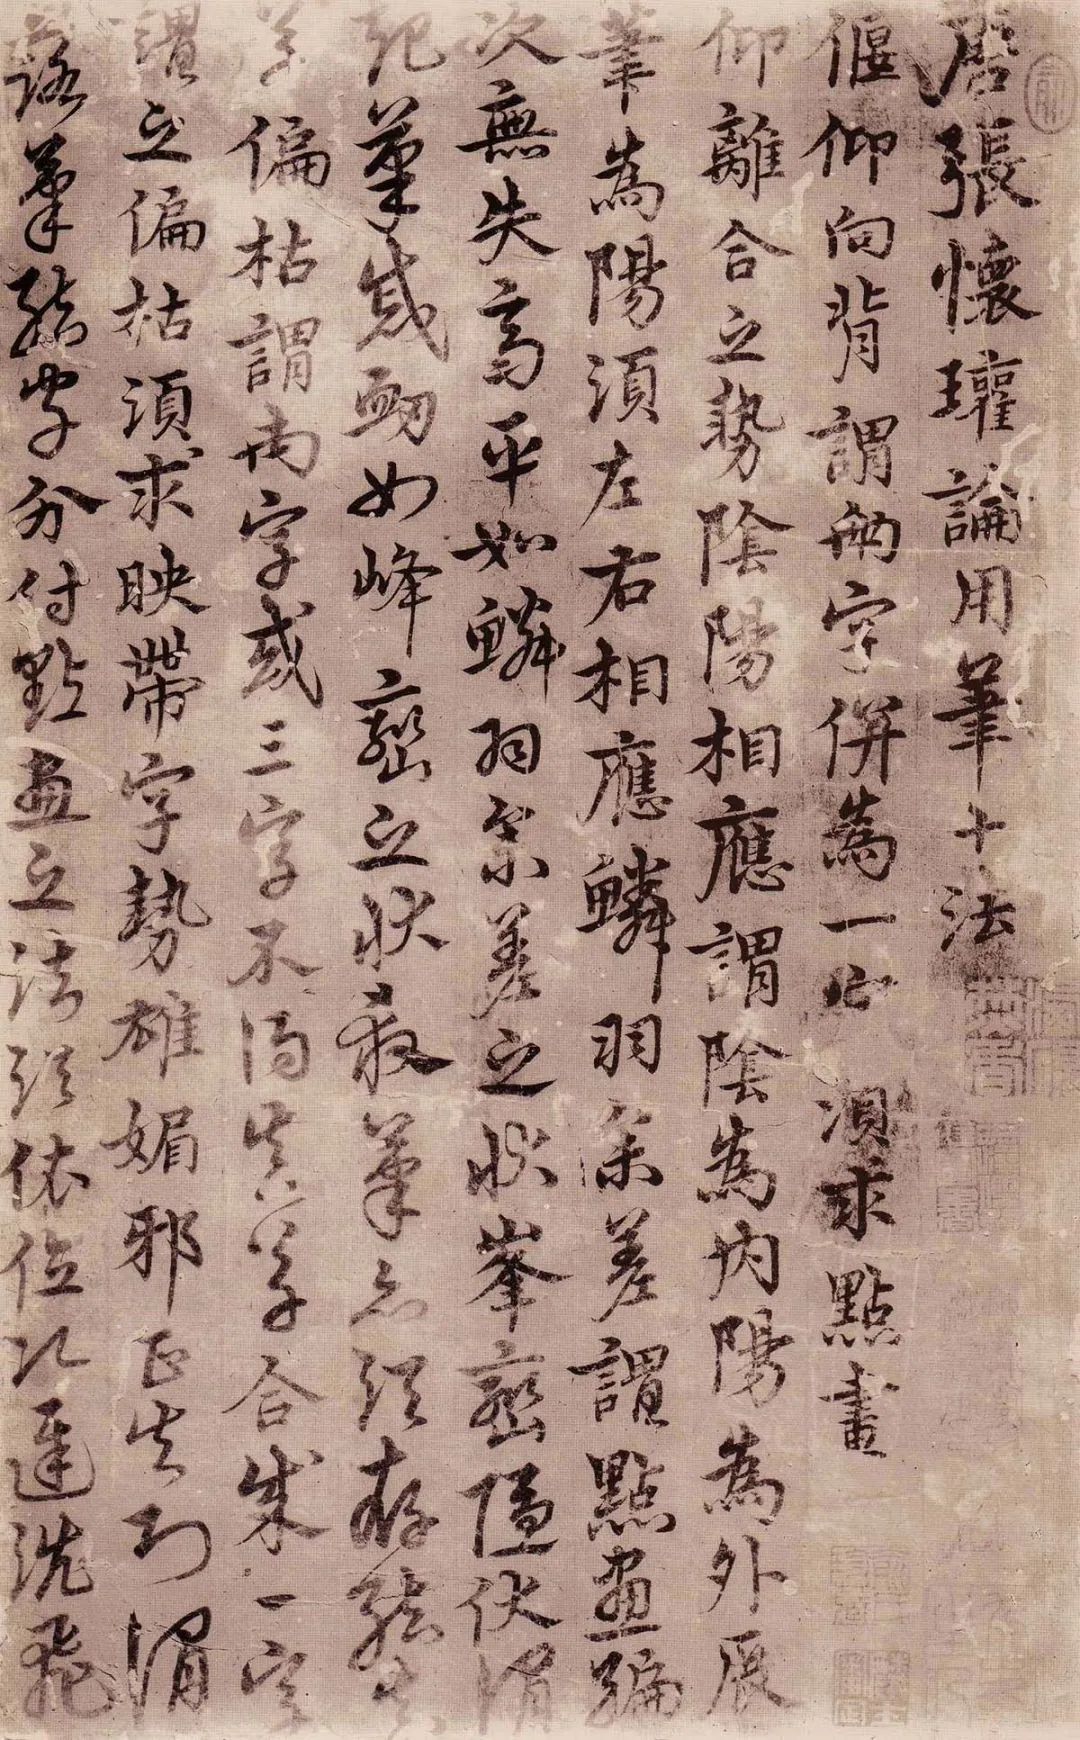 唐張懷瓘論用筆十法
偃仰向背謂兩字併為一 須求點畫
仰離合之勢陰陽相應謂陰為內陽為外展
筆為陽須左右相應鱗羽參差謂點畫編
次無失高平如鱗羽參差之狀峯巒隱伏謂
起筆或 如峰巒之狀 筆亦須存
字偏枯謂兩字或三字不得真草合成一字
謂之偏枯須求映帶字勢雄媚邪正失則謂
落筆結字分付點畫之法須依位次遲 飛